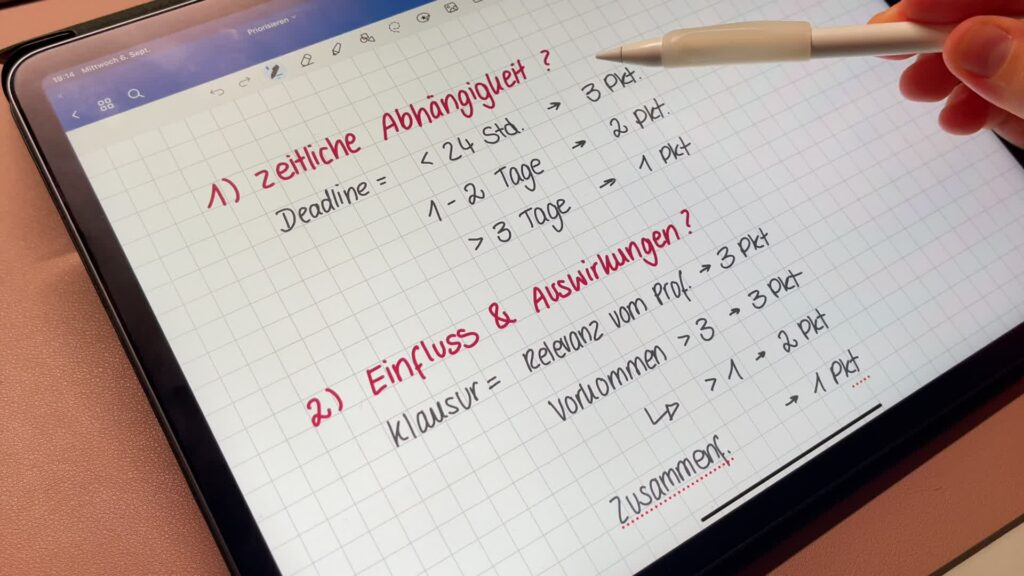 18:14 Mittwoch 6. Sept.
Priorisieren
1) zeitliche Abhängigkeit ?
Deadline = < 24 Std. → 3 Pkt.
1 - 2 Tage → 2 Pkt.
> 3 Tage → 1 Pkt
2) Einfluss & Auswirkungen ?
Klausur = Relevanz vom Prof. → 3 Pkt
Vorkommen > 3 → 3 Pkt
↳ > 1 → 2 Pkt
Zusammenf. → 1 Pkt